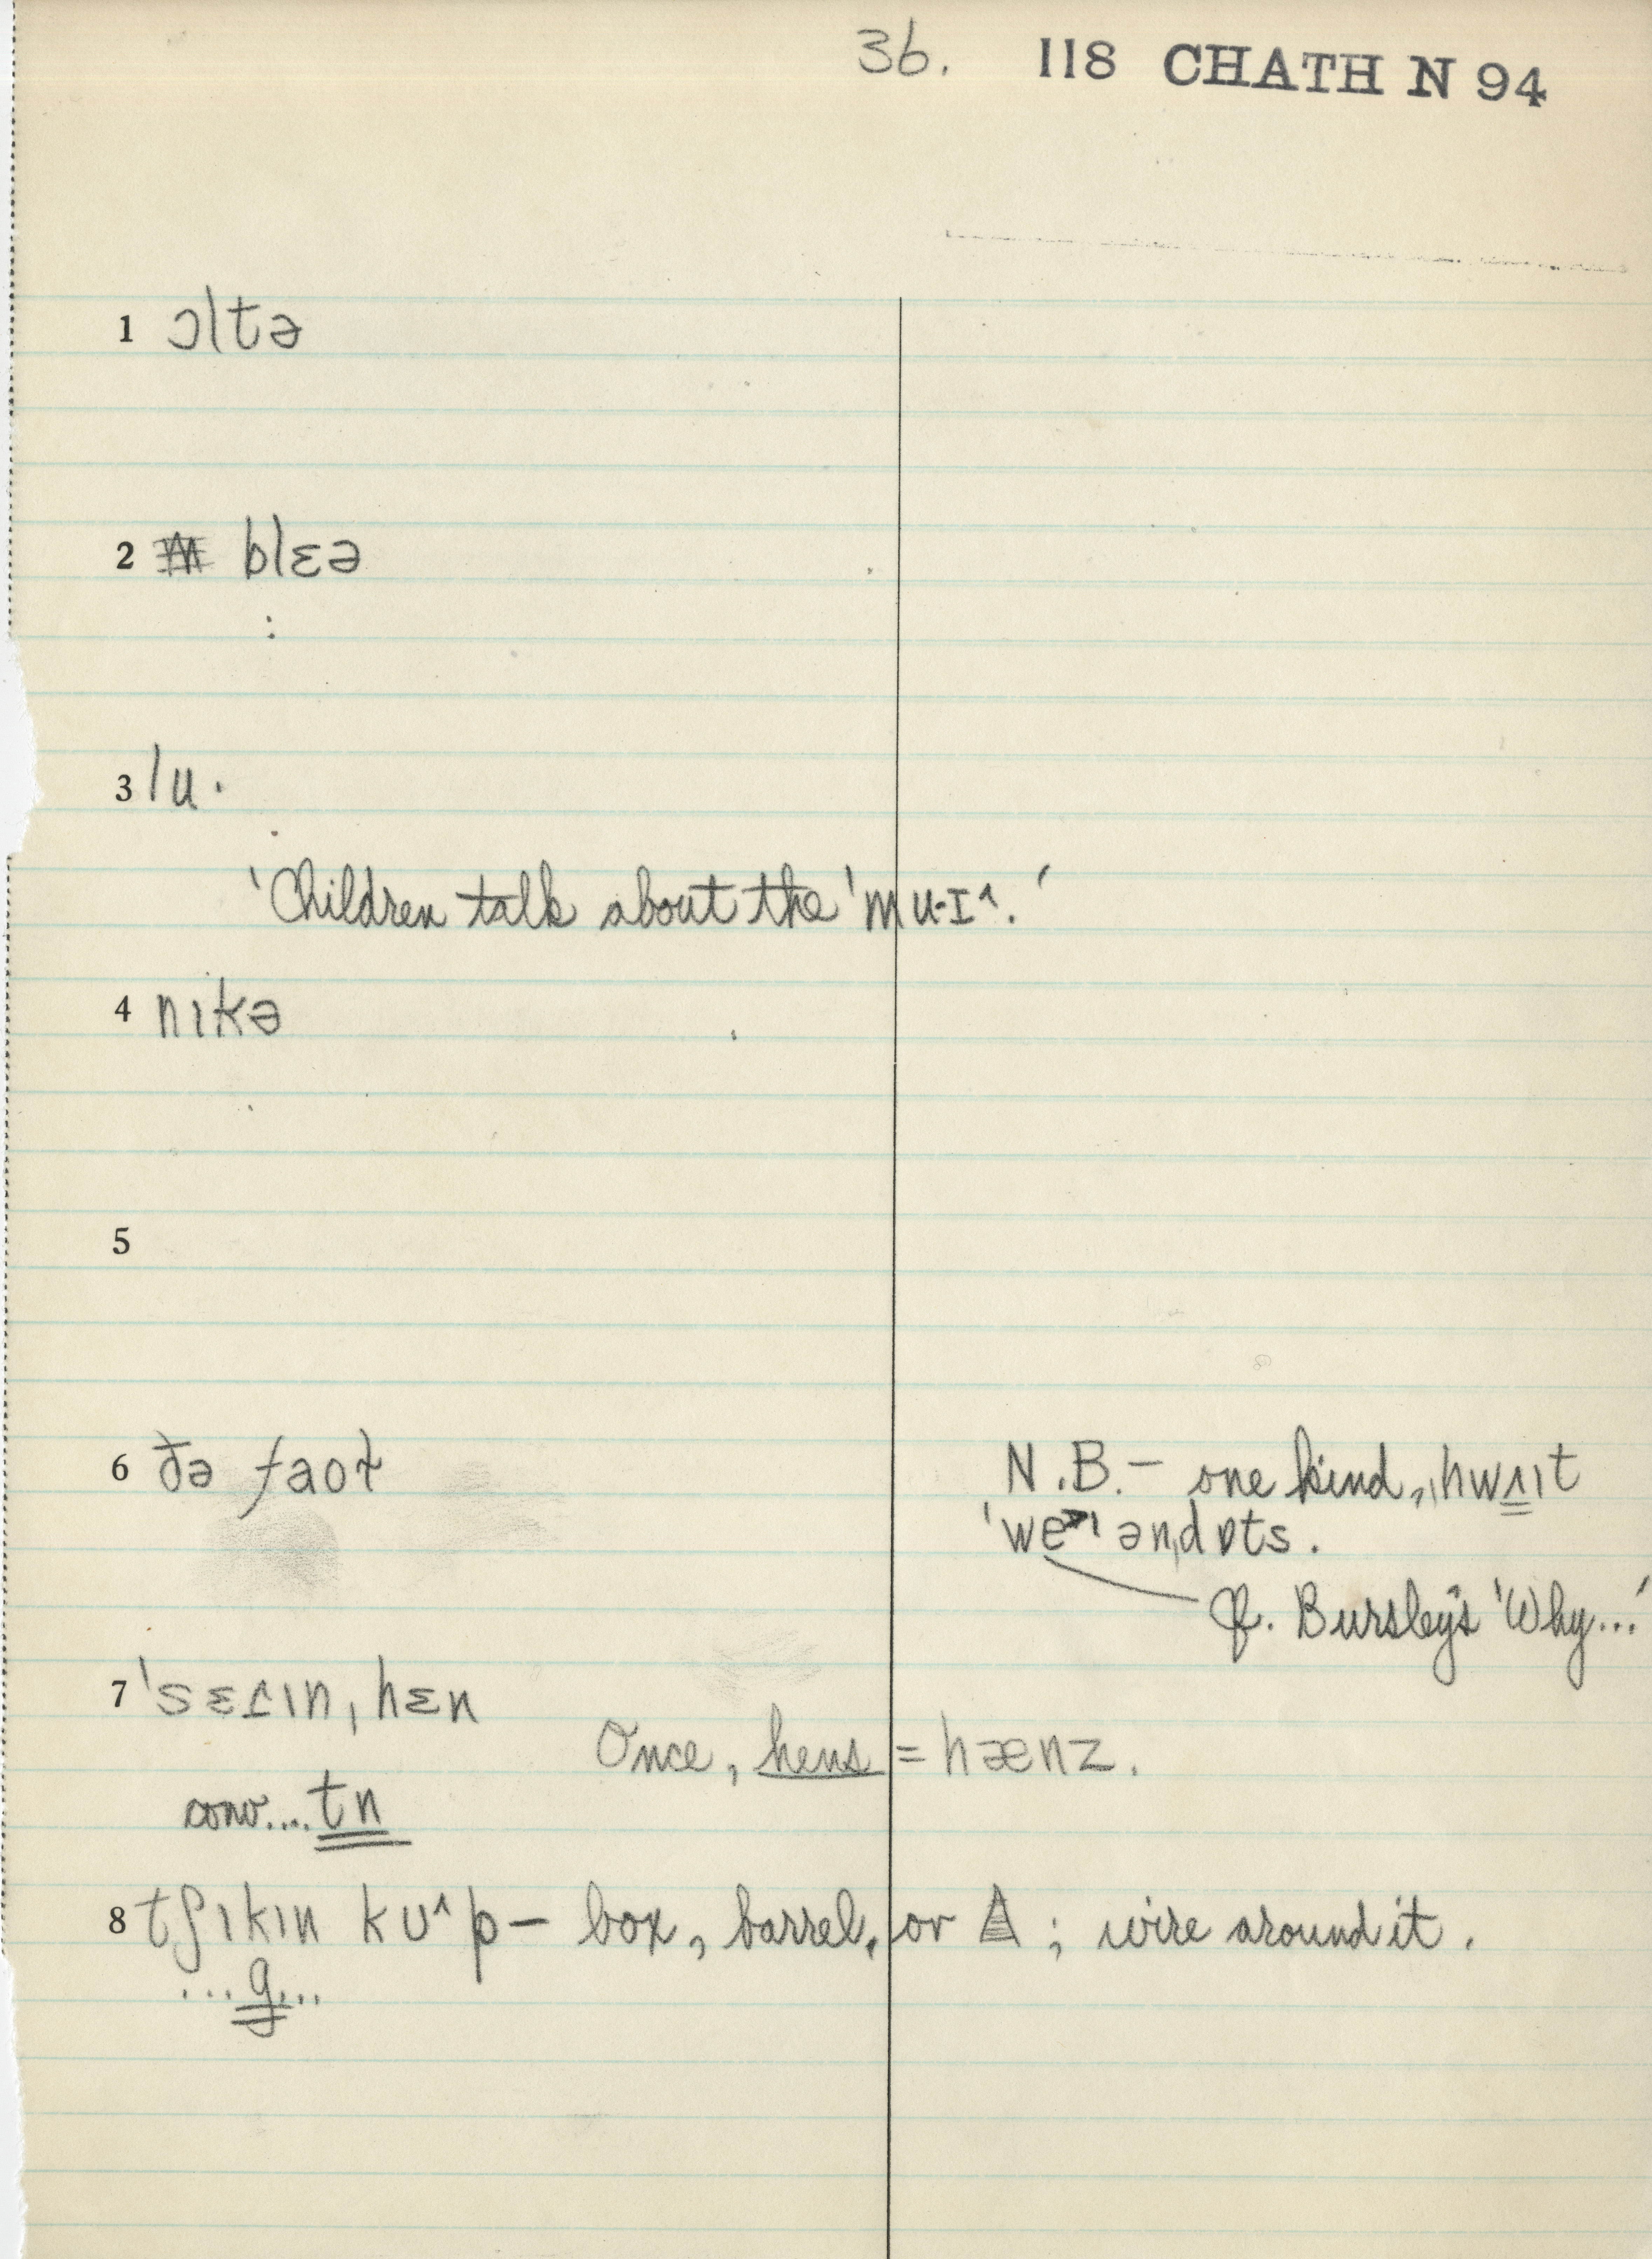 36. 118 CHATH N 94
1 ɔltə
2 blɛə
3 lu·
'Children talk about the 'mu·ɪ^.'
4 nıkə
5
6 ðə faoɫ
N.B.– one kind, hwʌıt
'we>ı ənd ɒts.
Cf. Bursley's 'Why...'
7 'sɛɾın, hɛn
Once, hens = hænz.
conv....tn
8 tʃıkın kʊ^p – box, barrel, or Δ; wire around it.
...g...